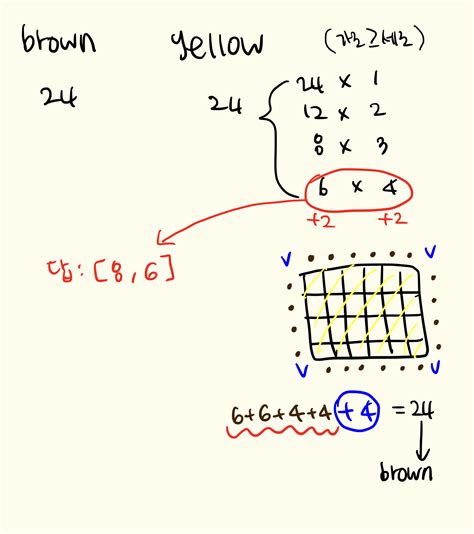 brown yellow (가로≥세로)
24 24
24 x 1
12 x 2
8 x 3
6 x 4
+2 +2
답: [8, 6]
v v
v v
6+6+4+4+4 = 24
brown